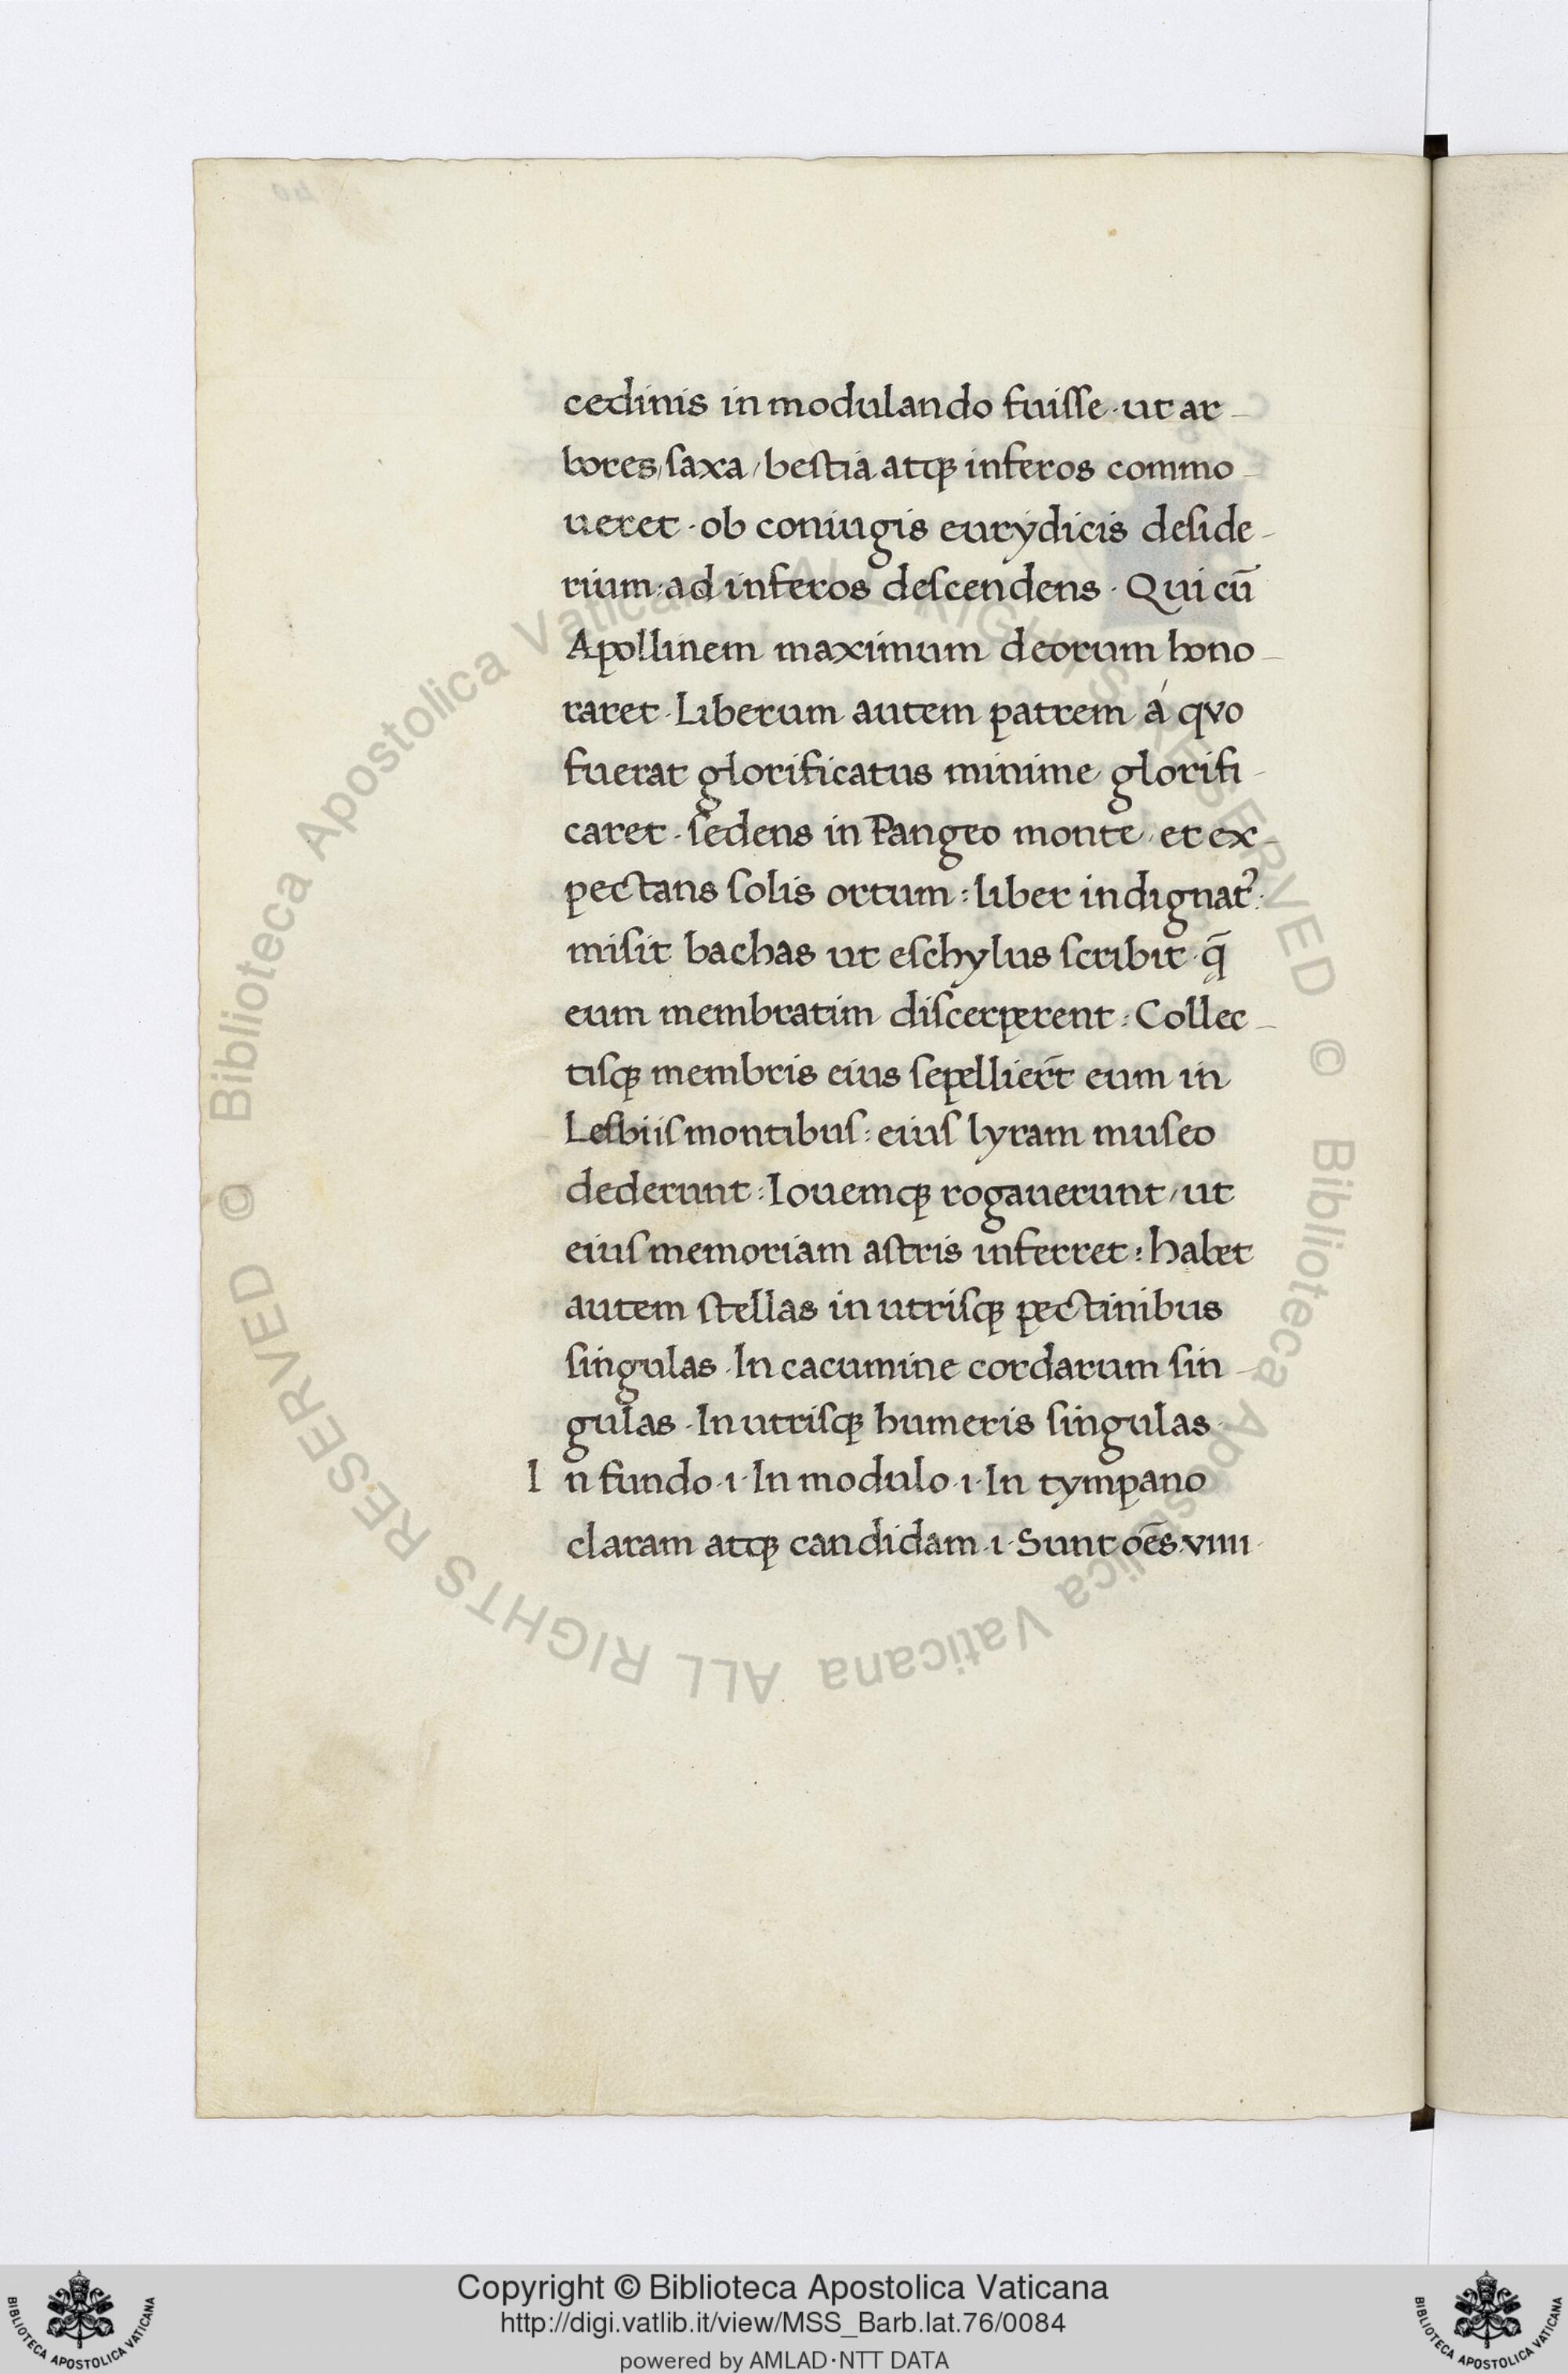 cedinis in modulando fuiſſe · ut ar-
bores, ſaxa / beſtia atqꝫ inferos commo-
ueret · ob coniugis eurydicis deſide-
rium : ad inferos deſcendens · Qui cū
Apollinem maximum deorum hono-
raret · Liberum autem patrem á qvo
fuerat glorificatus minime glorifi-
caret · ſedens in Pangeo monte · et ex-
pectans ſolis ortum : liber indignatᷣ ·
miſit bachas ut eſchylus ſcribit · q̄
eum membratim diſcerperent : Collec-
tiſqꝫ membris eius ſepellier̄t eum in
Leſbiiſ montibuſ : eiuſ lyram muſeo
dederunt : Iouemqꝫ rogauerunt / ut
eiuſ memoriam aſtris inferret : habet
autem ſtellas in utriſqꝫ pectinibus
ſingulas · In cacumine cordarum ſin-
gulas · In utriſqꝫ humeris ſingulas ·
In fundo · ı · In modulo · ı · In tympano
claram atqꝫ candidam · ı · Sunt oēs · vıııı ·
© Biblioteca Apostolica Vaticana ALL RIGHTS RESERVED © Biblioteca Apostolica Vaticana ALL RIGHTS RESERVED
Copyright © Biblioteca Apostolica Vaticana
http://digi.vatlib.it/view/MSS_Barb.lat.76/0084
powered by AMLAD·NTT DATA
BIBLIOTECA APOSTOLICA VATICANA
BIBLIOTECA APOSTOLICA VATICANA